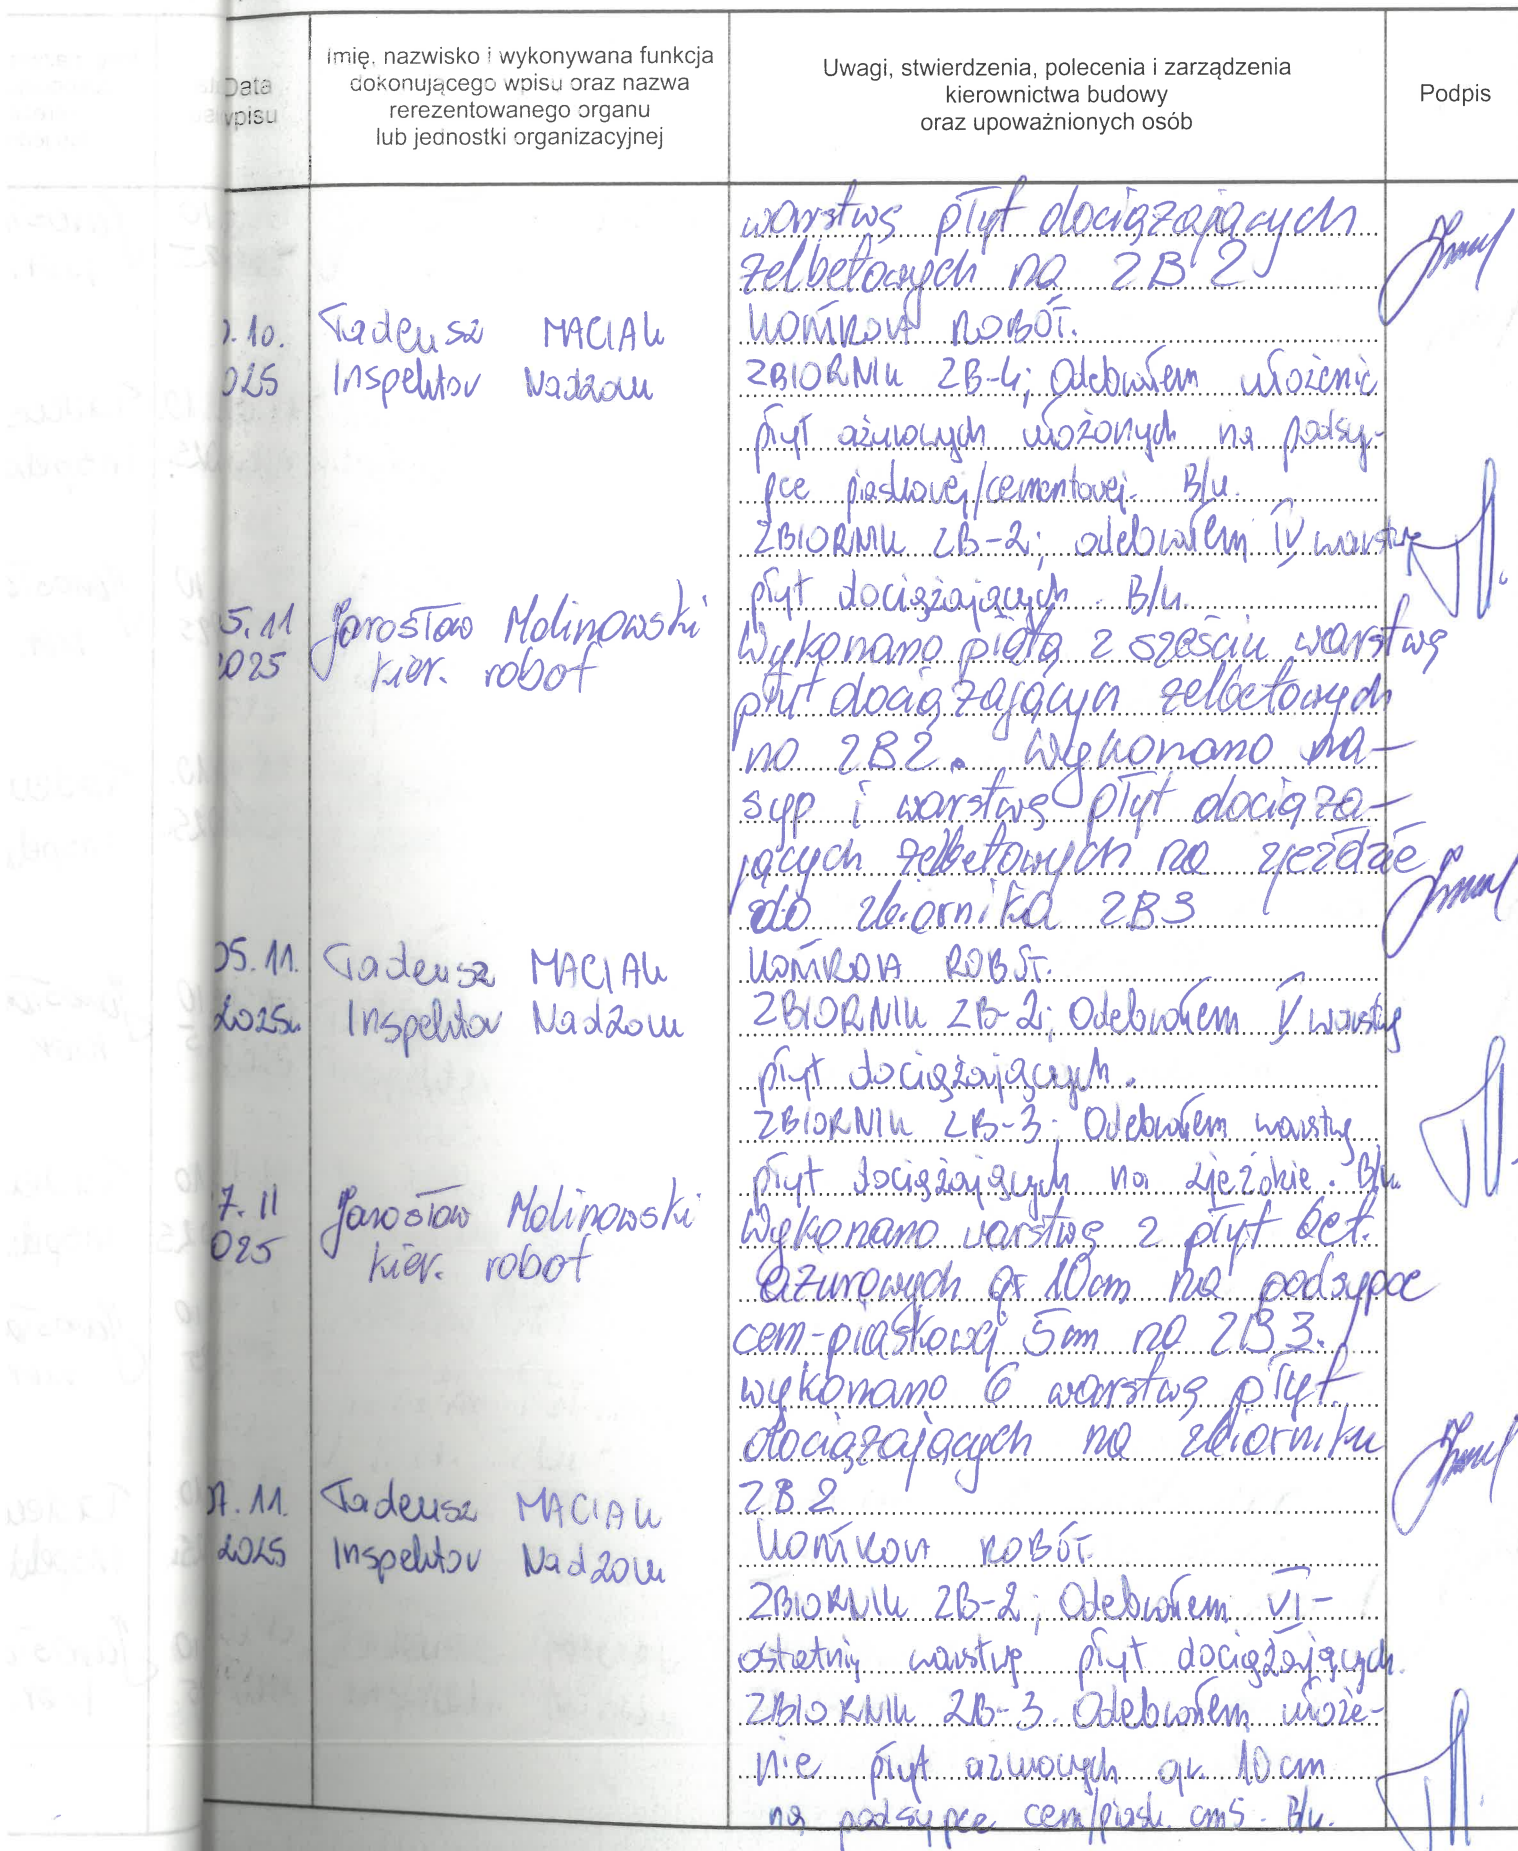 Data
wpisu
Imię, nazwisko i wykonywana funkcja
dokonującego wpisu oraz nazwa
rerezentowanego organu
lub jednostki organizacyjnej
Uwagi, stwierdzenia, polecenia i zarządzenia
kierownictwa budowy
oraz upoważnionych osób
Podpis
warstwę płyt dociązających
zelbetowych na ZB2
.10. Tadeusz MACIAK KONTROLA ROBÓT.
025 Inspektor Nadzoru ZBIORNIK ZB-4; Odebrałem ułożenie
płyt ażurowych ułożonych na podsy-
pce piaskowej/cementowej. B/u.
ZBIORNIK ZB-2; odebrałem IV warstwę
płyt dociążających. B/u.
5.11 Jarosław Malinowski Wykonano piątą z sześciu warstwę
2025 kier. robot płyt dociązającyh zelbetowych
na ZB2. Wykonano na-
syp i warstwę płyt dociąza-
jących zelbetowych na zjezdzie
do zbiornika ZB3
05.11. Tadeusz MACIAK KONTROLA ROBÓT.
2025r. Inspektor Nadzoru ZBIORNIK ZB-2; Odebrałem V warstwę
płyt dociążających.
ZBIORNIK ZB-3; Odebrałem warstwę
płyt dociążających na zjeździe. B/u.
7.11 Jarosław Malinowski Wykonano warstwę z płyt bet.
025 kier. robot azurowych gr 10cm na podsypce
cem-piaskowej 5cm na ZB3.
wykonano 6 warstwę płyt
dociązających na zbiorniku
ZB2
07.11. Tadeusz MACIAK KONTROLA ROBÓT.
2025 Inspektor Nadzoru
ZBIORNIK ZB-2; Odebrałem VI-
ostatnią warstwę płyt dociążających.
ZBIORNIK ZB-3. Odebrałem ułoże-
nie płyt ażurowych gr. 10cm
na podsypce cem/piask. cm5. B/u.